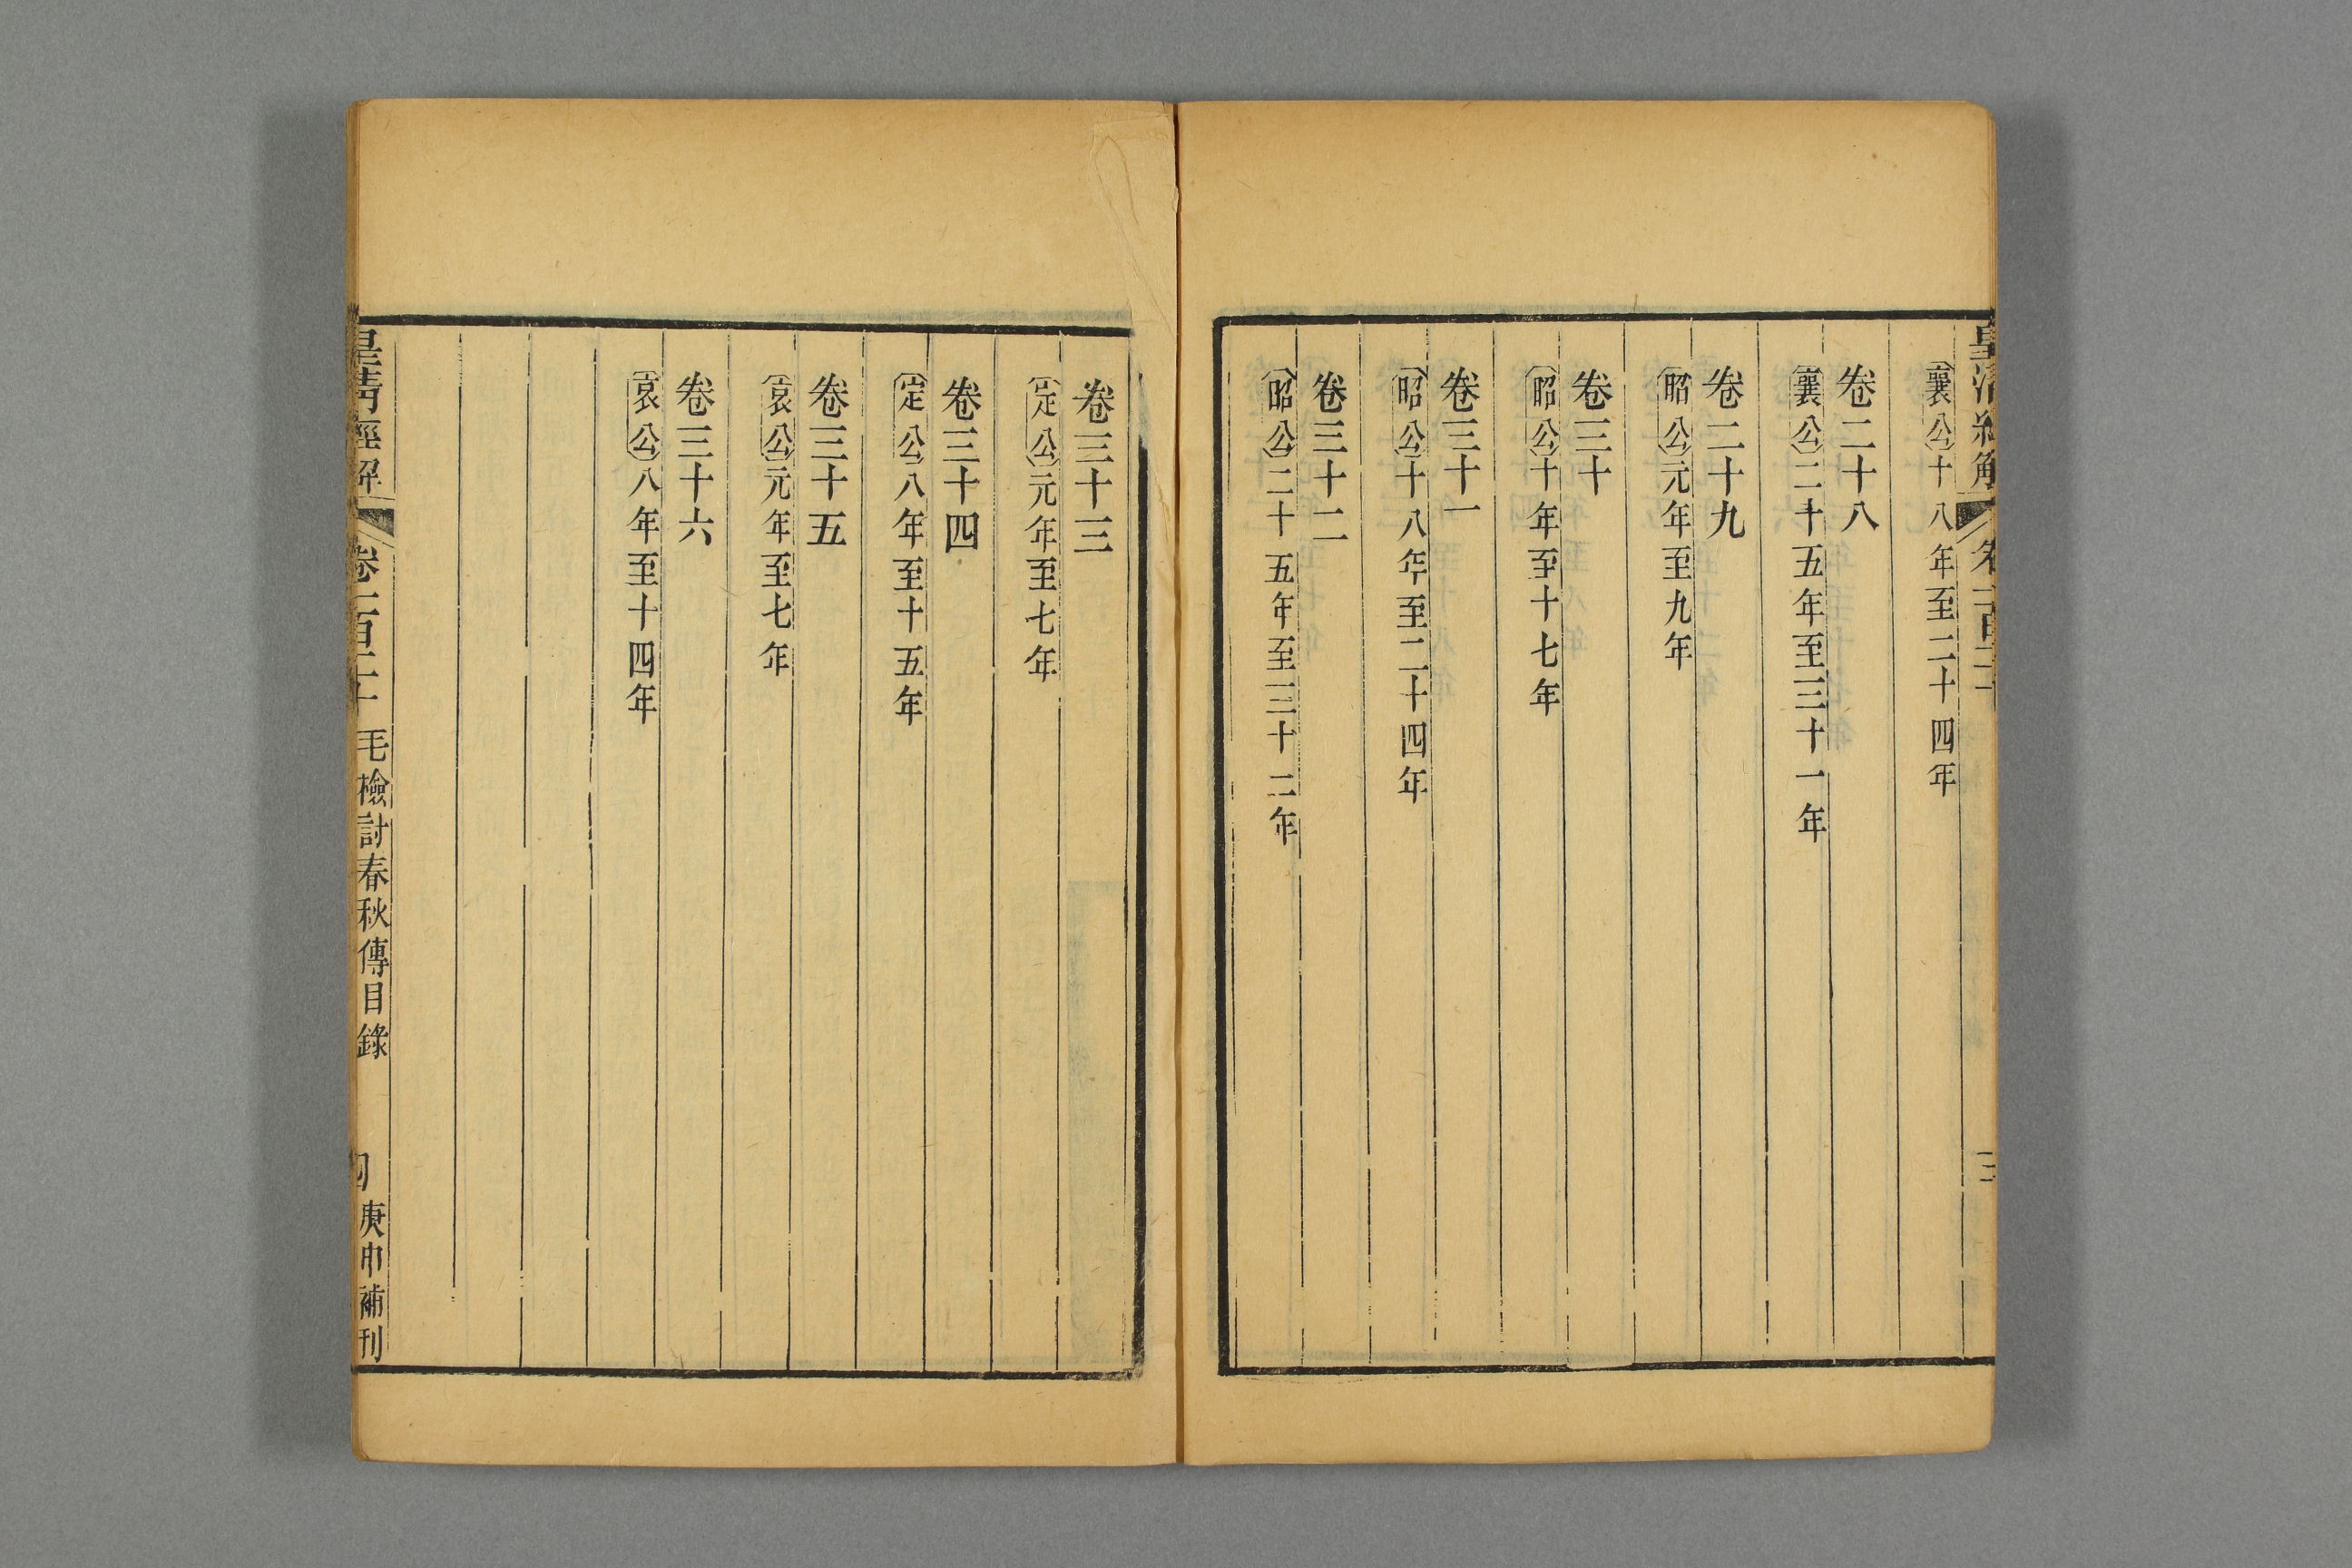 皇清經解
卷一百二十
三
襄公十八年至二十四年
卷二十八
襄公二十五年至三十一年
卷二十九
昭公元年至九年
卷三十
昭公十年至十七年
卷三十一
昭公十八年至二十四年
卷三十二
昭公二十五年至三十二年
卷三十三
定公元年至七年
卷三十四
定公八年至十五年
卷三十五
哀公元年至七年
卷三十六
哀公八年至十四年
皇清經解
卷一百二十
毛檢討春秋傳目錄
四
庚申補刊